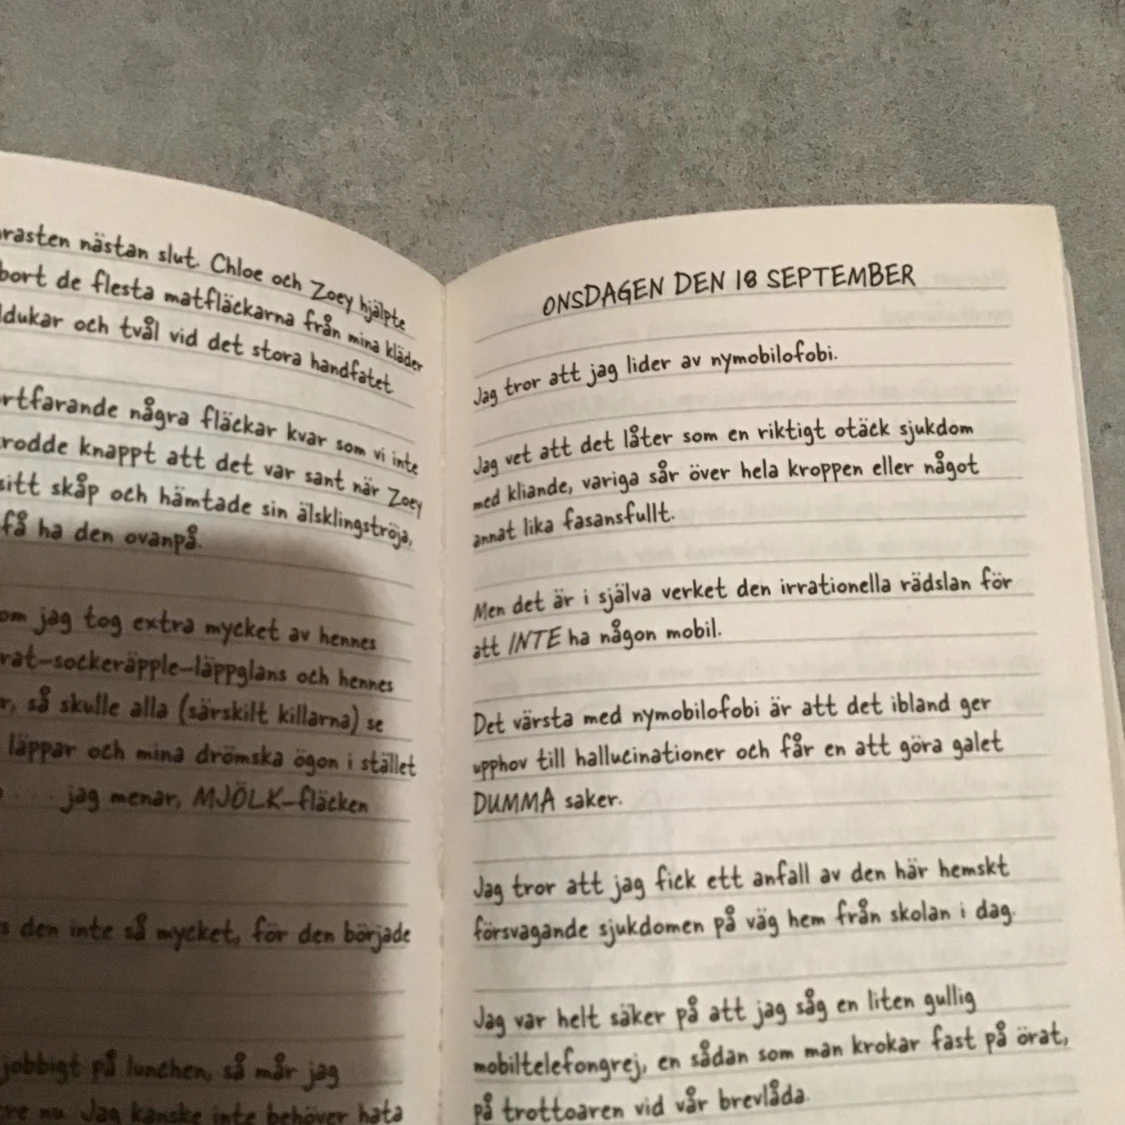 rasten nästan slut. Chloe och Zoey hjälpte
bort de flesta matfläckarna från mina kläder
dukar och tvål vid det stora handfatet
ortfarande några fläckar kvar som vi inte
rodde knappt att det var sant när Zoey
sitt skåp och hämtade sin älsklingströja,
få ha den ovanpå.
om jag tog extra mycket av hennes
rat-sockeräpple-läppglans och hennes
r, så skulle alla (särskilt killarna) se
läppar och mina drömska ögon i stället
jag menar, MJÖLK-fläcken
s den inte så mycket, för den började
jobbigt på lunchen, så mår jag
re nu. Jag kanske inte behöver hata
ONSDAGEN DEN 18 SEPTEMBER
Jag tror att jag lider av nymobilofobi.
Jag vet att det låter som en riktigt otäck sjukdom
med kliande, variga sår över hela kroppen eller något
annat lika fasansfullt.
Men det är i själva verket den irrationella rädslan för
att INTE ha någon mobil.
Det värsta med nymobilofobi är att det ibland ger
upphov till hallucinationer och får en att göra galet
DUMMA saker.
Jag tror att jag fick ett anfall av den här hemskt
försvagande sjukdomen på väg hem från skolan i dag.
Jag var helt säker på att jag såg en liten gullig
mobiltelefongrej, en sådan som man krokar fast på örat,
på trottoaren vid vår brevlåda.